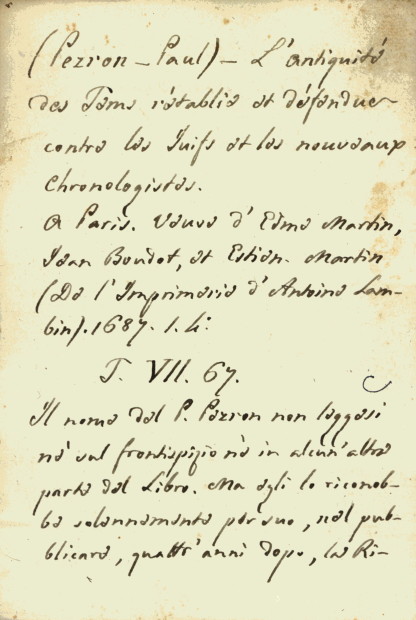 (Pezron - Paul) - L'antiquité
des Tems rétablie et défendue
contre les Juifs et les nouveaux
Chronologistes.
A Paris. Veuve d'Edme Martin,
Jean Boudot, et Estien. Martin
(De l'Imprimerie d'Antoine Lam-
bin). 1687. 1. 4:
T. VII. 67.
Il nome del P. Pezron non leggesi
nè sul frontispizio nè in alcun'altra
parte del Libro. Ma egli lo riconob-
be solennemente per suo, nel pub-
blicare, quattr'anni dopo, la Ri-